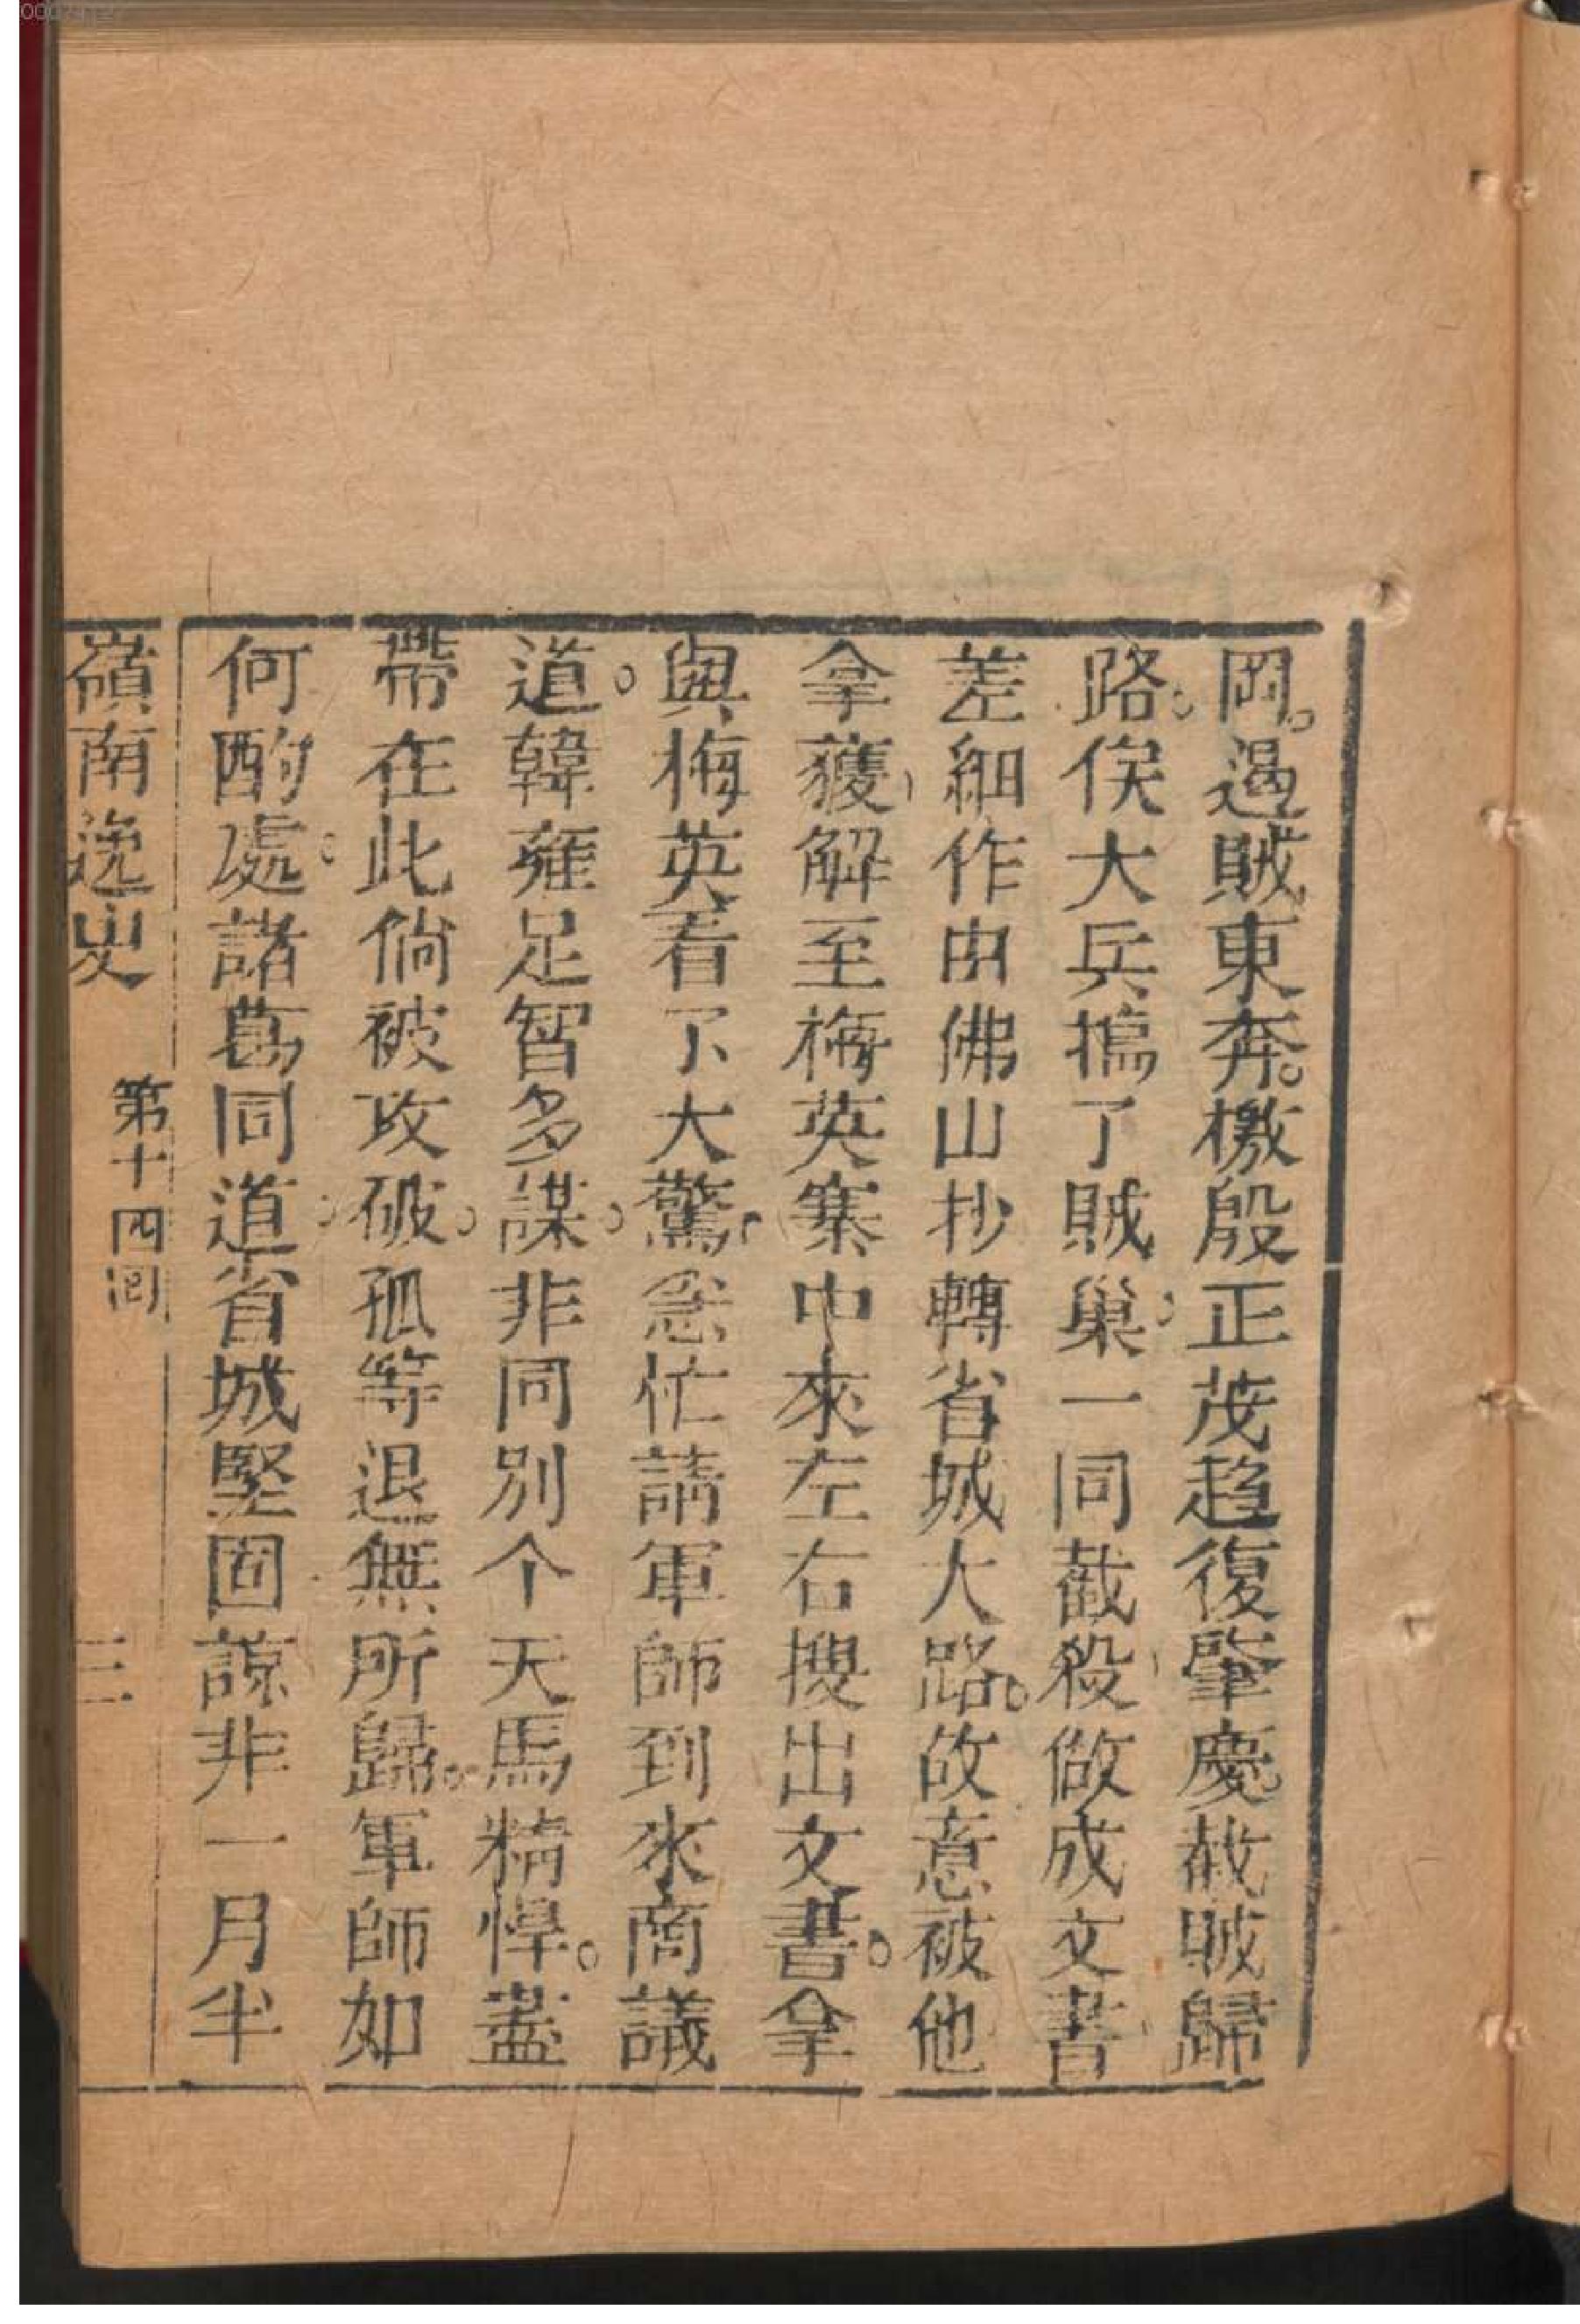 岡。遏賊東奔。檄殷正茂趋復肇慶。截賊歸
路。俟大兵搗了賊巢。一同截殺、做成文書、
差細作由佛山抄轉省城大路。故意被他
拿獲、解至梅英寨中來左右搜出文書。拿
與梅英看了大驚、急忙請軍師到來商議
道。韓雍足智多謀。非同別个天馬精悍。盡
帶在此倘被攻破。孤等退無所歸。軍師如
何酌處。諸葛同道。省城堅固諒非一月半
嶺南逸史 第十四囘 三